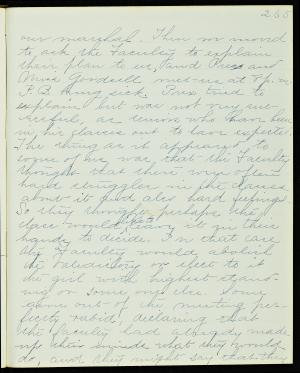 265
our marshal. Then we moved
to ask the Faculty to explain
their plan to us, and Pres. and
Miss Goodsell met us at 8 p.m.
P.B. being sick. Prex tried to
explain but was not very suc-
cessful, as seniors who have been
in his classes out to have expected.
The thing as it appeared to
some of us was, that the Faculty
thought that there were often
hard struggles in the classes
about it and also hard feelings.
So they thought perhaps the
class would leave it in their
hands to decide. In that case
the Faculty would abolish
the valedictory or elect to it
the girl with highest stand-
ing or some one else. Some
came out of the meeting per-
fectly rabid, declaring that
the Faculty had already made
up their minds what they would
do, and they might say that they